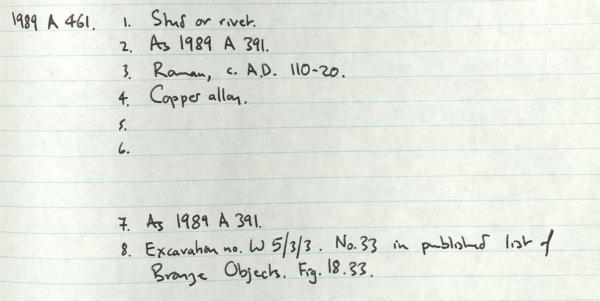 1989 A 461. 1. Stud or rivet.
2. As 1989 A 391.
3. Roman, c. A.D. 110-20.
4. Copper alloy.
5.
6.
7. As 1989 A 391.
8. Excavation no. W 5/3/3. No. 33 in published list of
Bronze Objects. Fig. 18.33.